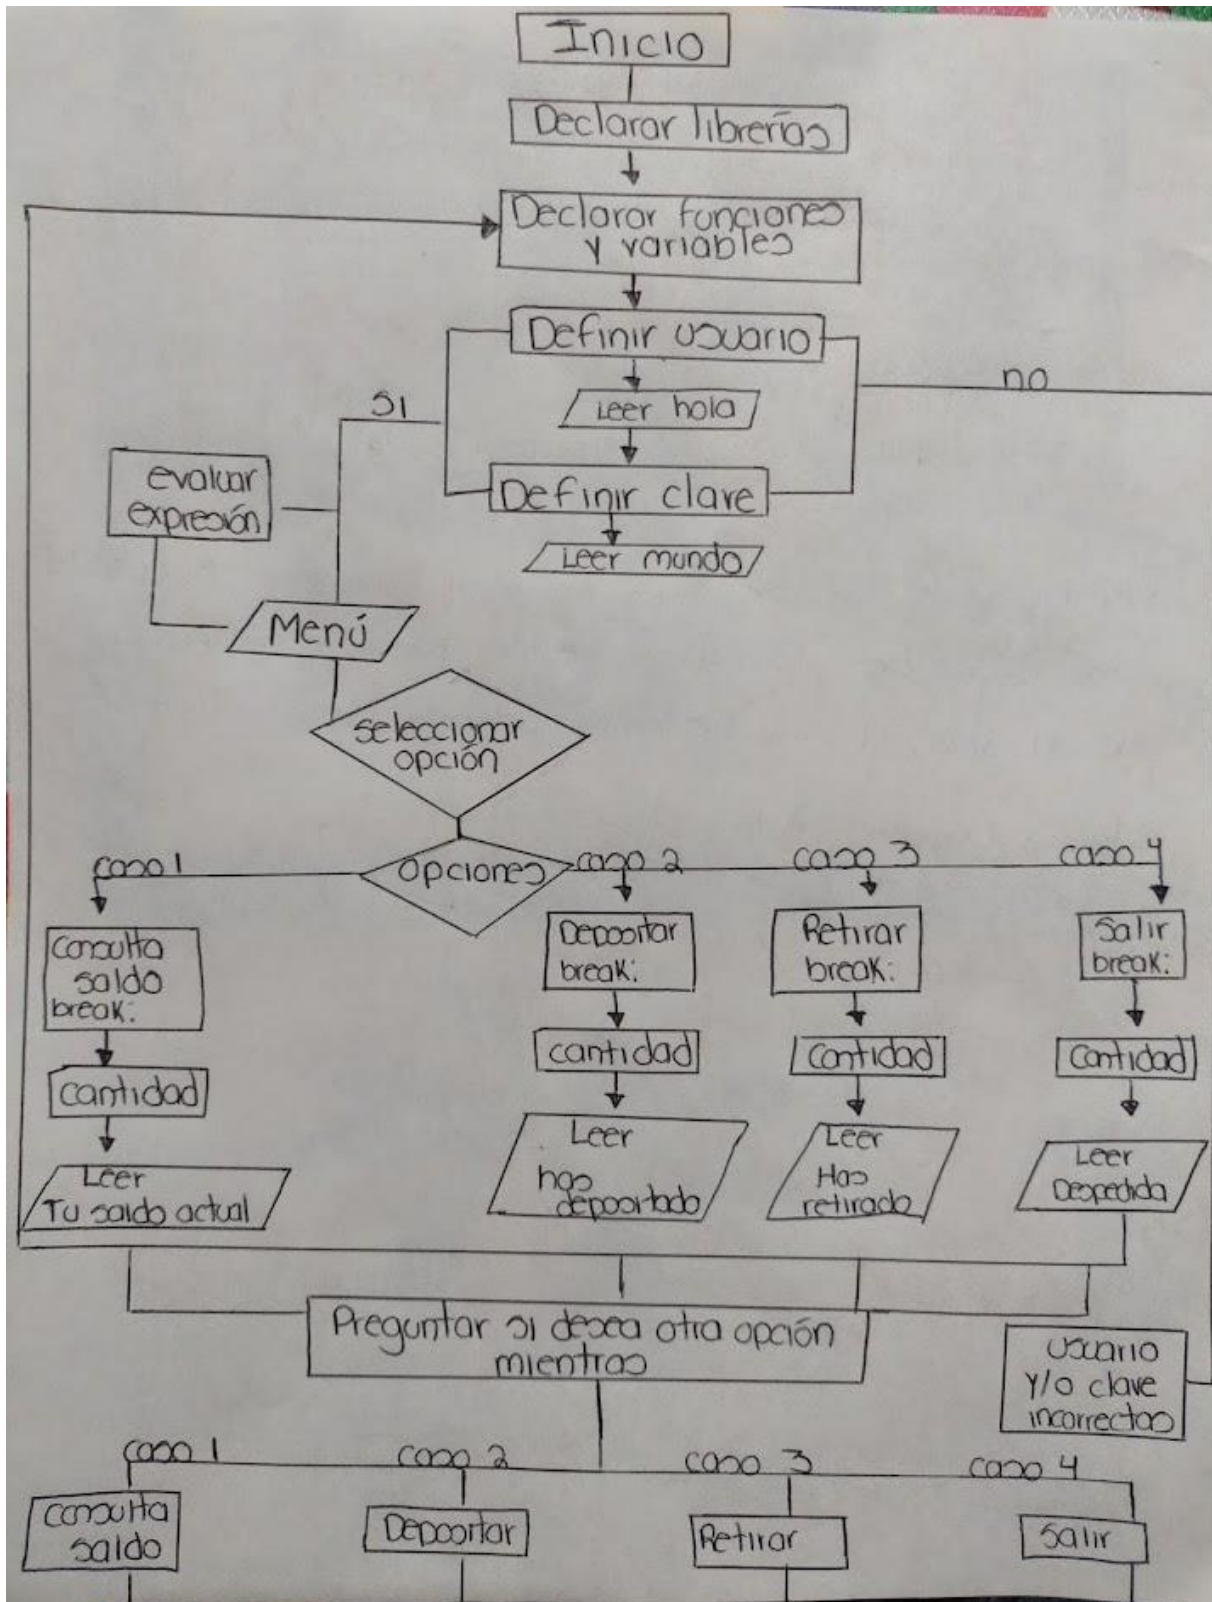 Inicio
Declarar librerías
Declarar funciones
y variables
Definir usuario
no
Leer hola
SI
evaluar
expresión
Definir clave
Leer mundo
Menú
seleccionar
opción
caso 1
opciones
caso 2
caso 3
caso 4
Consulta
saldo
break:
Depositar
break:
Retirar
break:
Salir
break:
cantidad
cantidad
Cantidad
Cantidad
Leer
Tu saldo actual
Leer
has
depositado
Leer
Has
retirado
Leer
Despedida
Preguntar si desea otra opción
mientras
usuario
y/o clave
incorrectas
caso 1
caso 2
caso 3
caso 4
Consulta
saldo
Depositar
Retirar
Salir